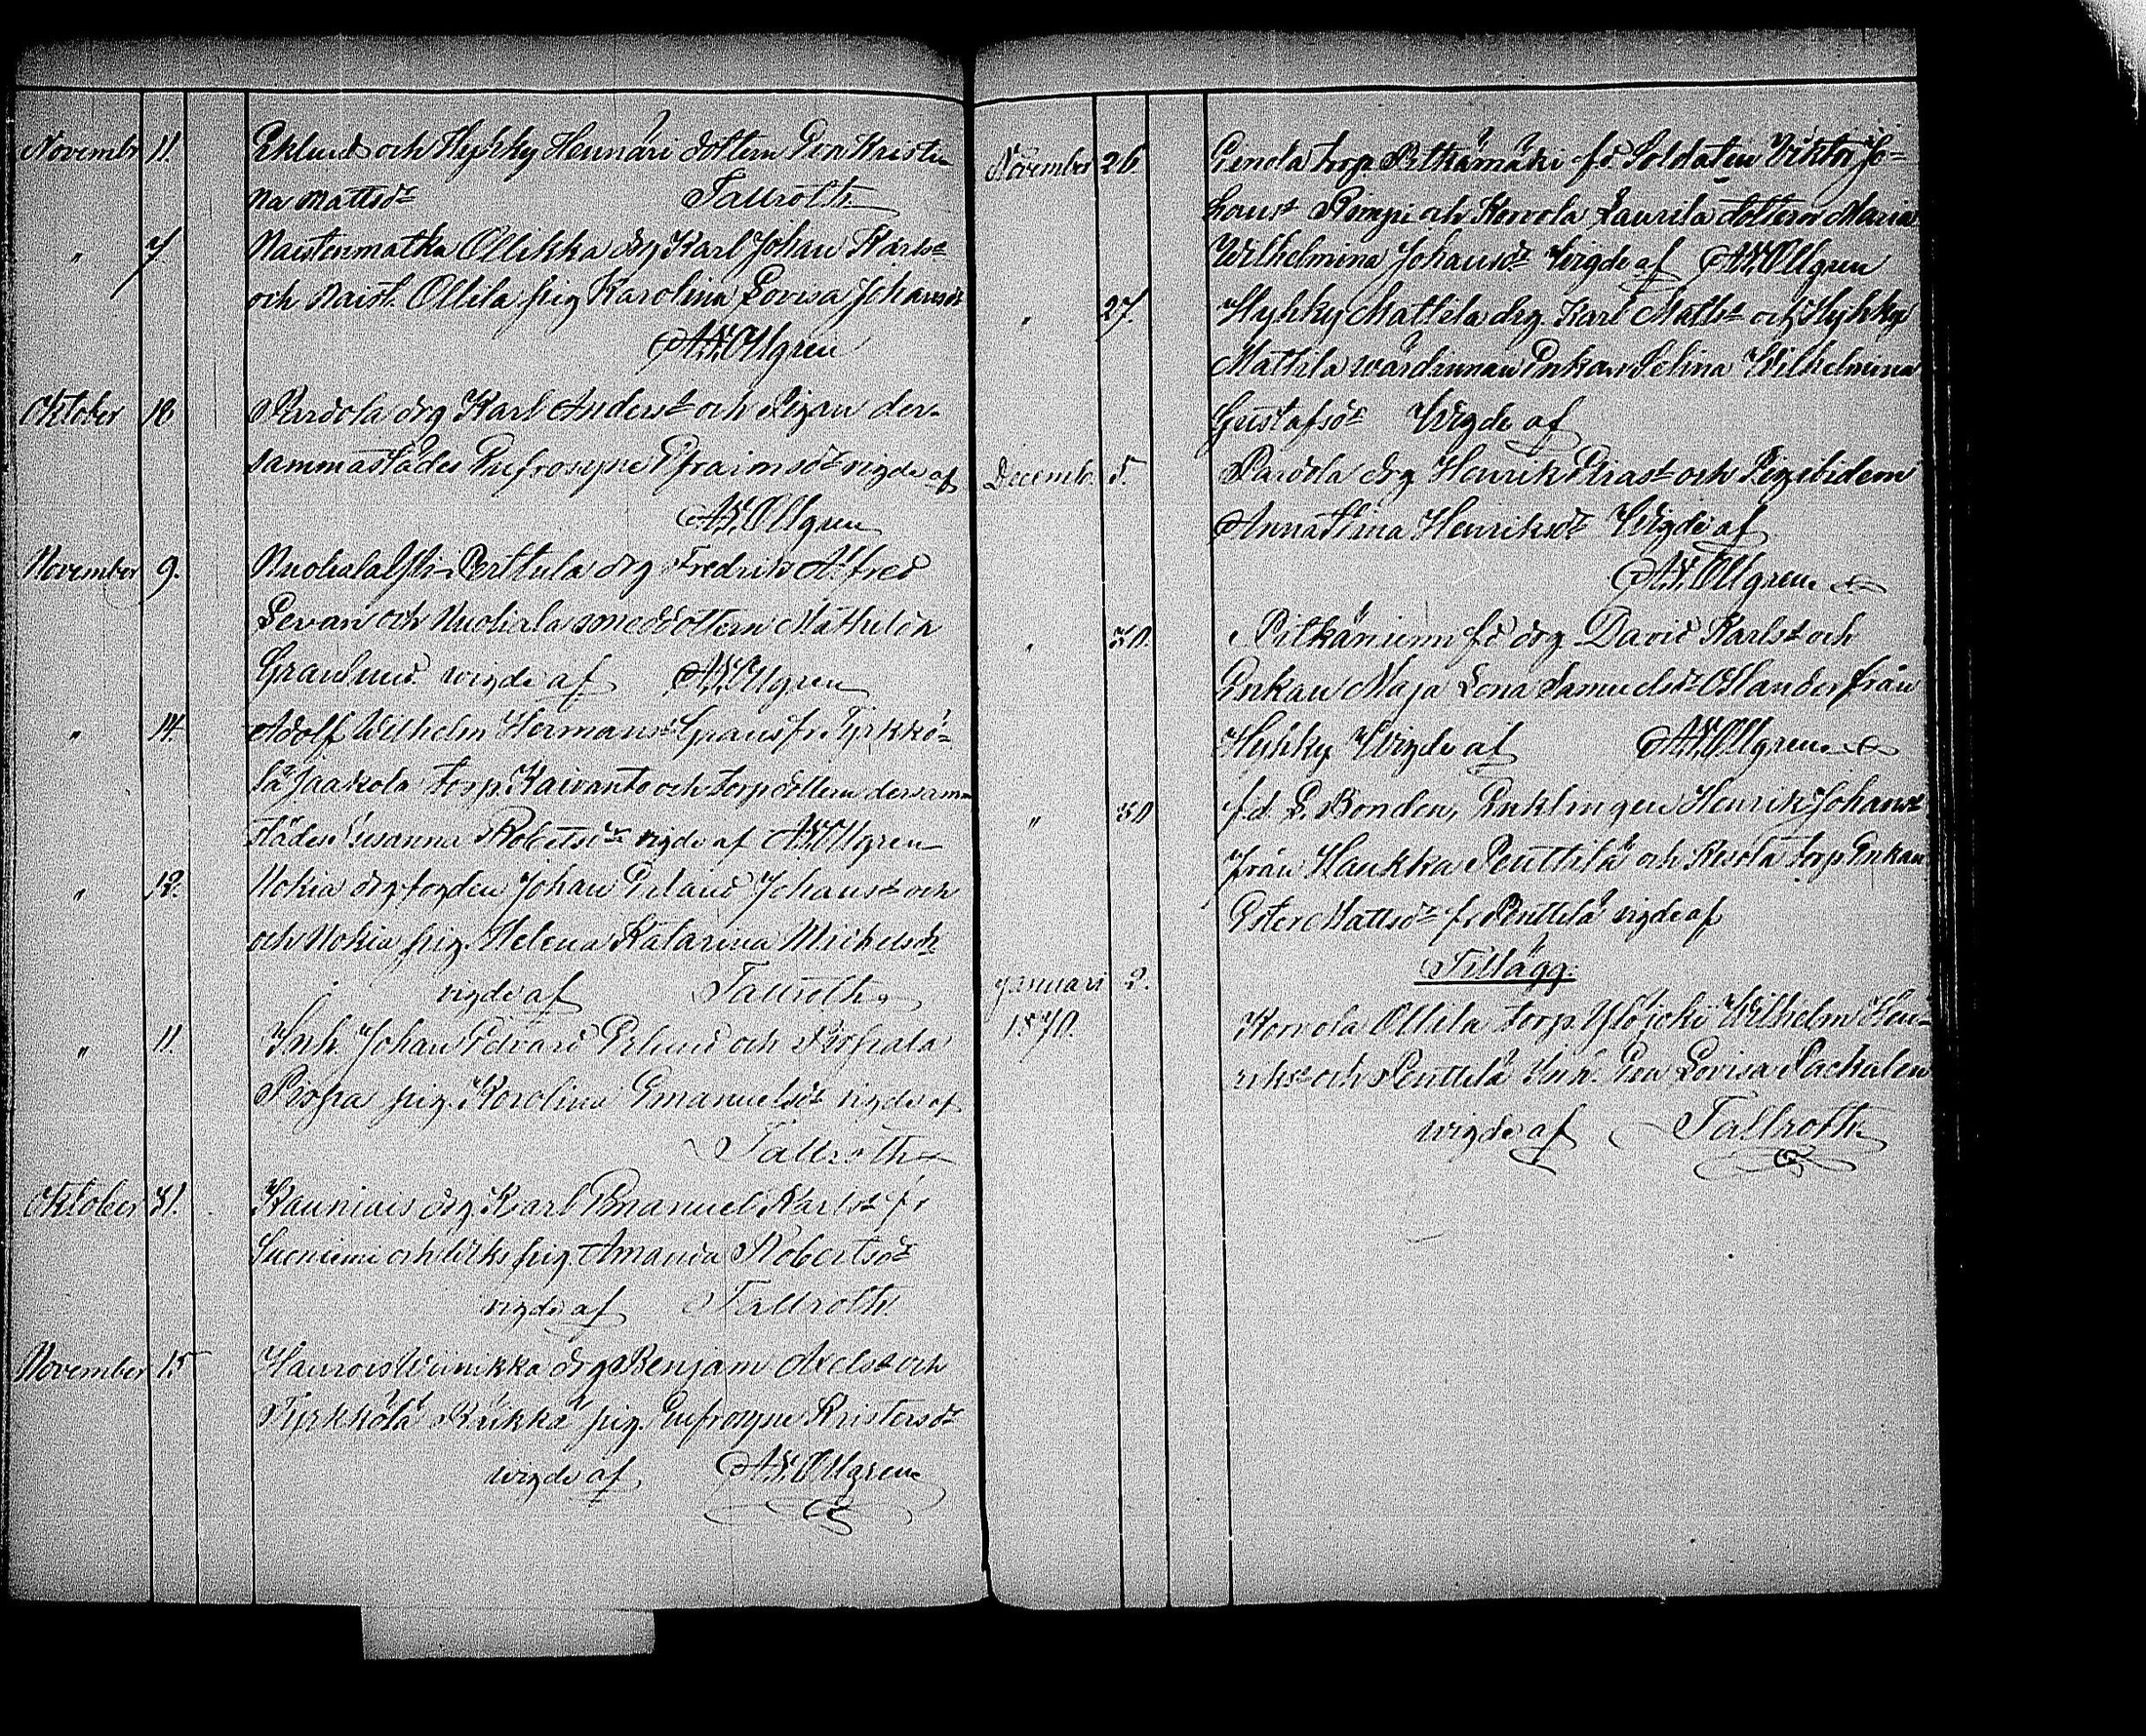 Novembr 11. Eklund och Hyhky Hennäri dottern Eva Kristi-
na Mattsdr Tallroth
" 7 Naistenmatka Ollikka drg Karl Johan Karlsn
och Naist. Ollila pig Karolina Lovisa Johansdr
A.W. Ollgren
Oktober 18 Pardola drg Karl Andersn och Pigan der-
sammastädes Eufrosyne Efraimsdr vigde af
A.W. Ollgren
November 9. Nuoliala Yli-Perttula drg Fredrik Alfred
Levan och Nuoliala smeddottern Mathilda
Granlund vigde af A.W. Ollgren
" 14. Adolf Wilhelm Hermansn Grans fr. Tyrkkö-
lä Jaakola torp. Kaivanto och torpdottern dersam-
städes Susanna Robertsdr vigde af A.W. Ollgren
" 12. Nokia drgfogden Johan Erland Johansn och
och Nokia pig. Helena Katarina Michelsdr
vigde af Tallroth
" 11. Inh. Johan Edvard Erlund och
Pispa pig. Karolina Emanuelsdr vigde af
Tallroth
Oktober 31. Kauniais drg Karl Emanuel Karlsn fr
och pig. Amanda Robertsdr
vigde af Tallroth.
November 15 Haurois Wiinikka drg Benjam Axelsn och
Tyrkkölä Räikkä pig. Eufrosyne Kristersdr
wigde af A.W. Ollgren
November 26. torp. Pitkämäki fd Soldaten Viktor Jo-
hansn Rimpi och Korvola Laurila dottern Maria
Wilhelmina Johansdr Wigde af A.W. Ollgren
" 27. Hyhky Mattila drg. Karl Mattsn och Hyhky
Mattila wärdinnan Enkan Selina Wilhelmina
Gustafsdr Wigde af
Decemb. 5. Pardola drg Henrik och Pig ibidem
Anna Stina Henriksdr Wigde af
A.W. Ollgren
" 30. Pitkäniemi fd drg David Karlsn och
Enkan Maja Lena Samuelsdr Ollander från
Hyhky Wigde af A.W. Ollgren
" 30 f.d. L. Bonden, Enklingen Henrik Johansn
från Haukka Penttilä och Kesola torp Enkan
Ester Mattsdr fr Penttilä vigde af
Tillägg:
Januari 2. Korvola Ollila torp. Ylöjoki Wilhelm Hen-
1870. riksn och Penttilä Inh. Eva Lovisa Pachalen
wigde af Tallroth